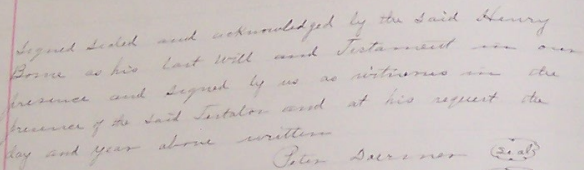 Signed Sealed and acknowledged by the said Henry
Borne as his last Will and Testament in our
presence and signed by us as witnesses in the
presence of the said Testator and at his request the
day and year above written
Peter Doermer (Seal)